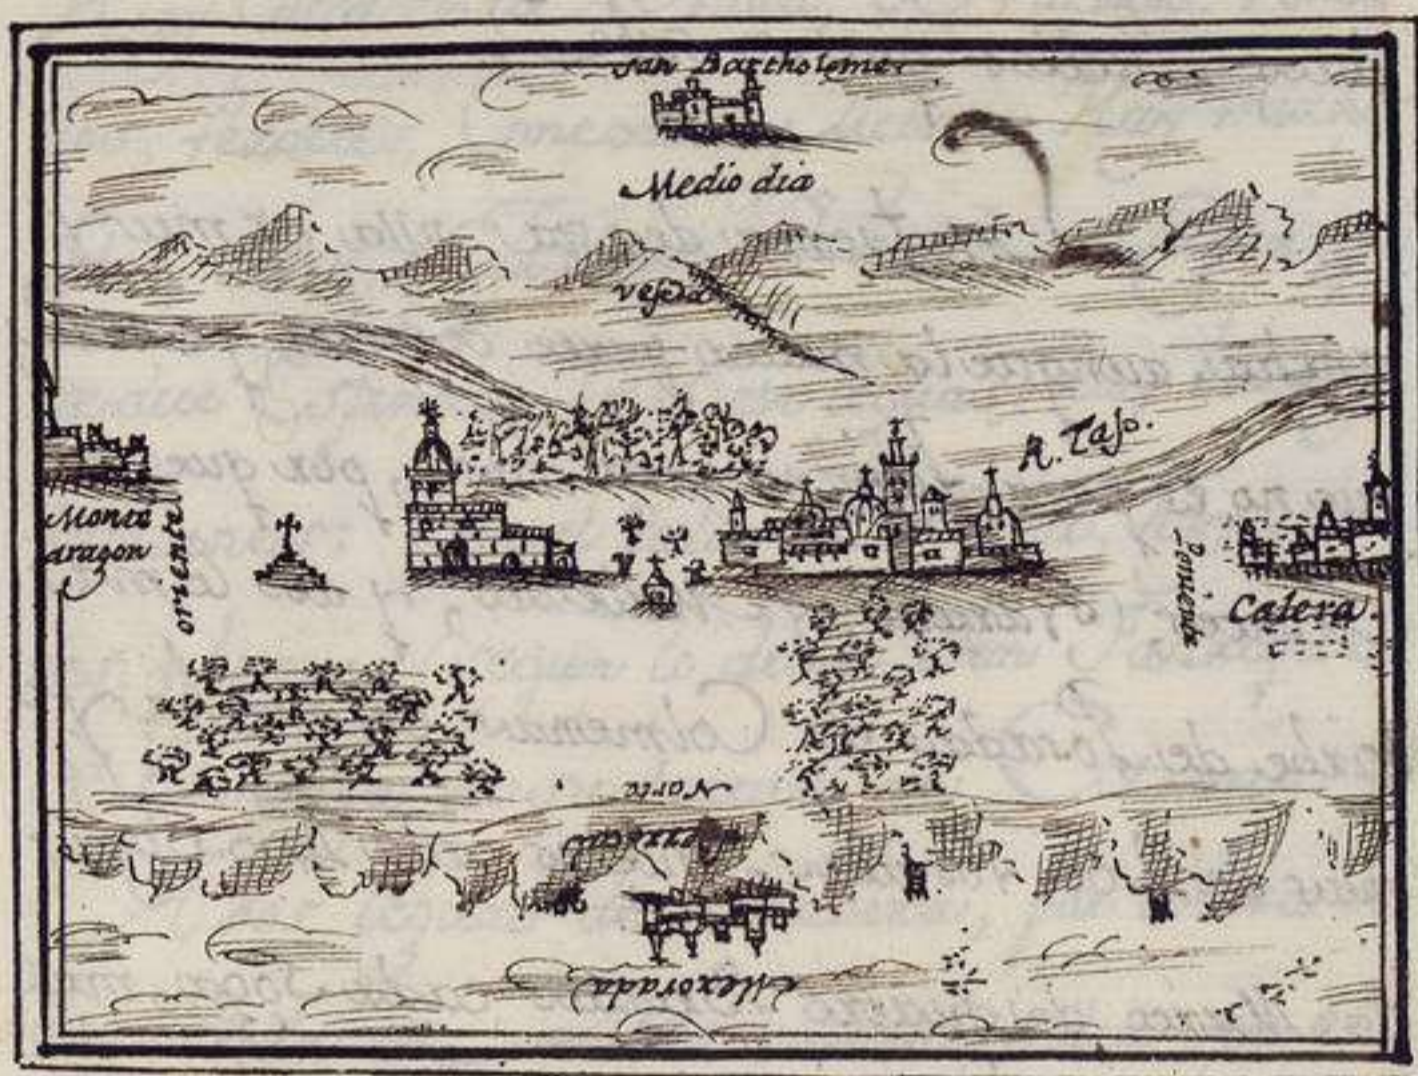 san Bartholome.
Medio dia
veseda
R. Tajo.
Monte
aragon
Poniente
Calera.
Norte
Mexorada